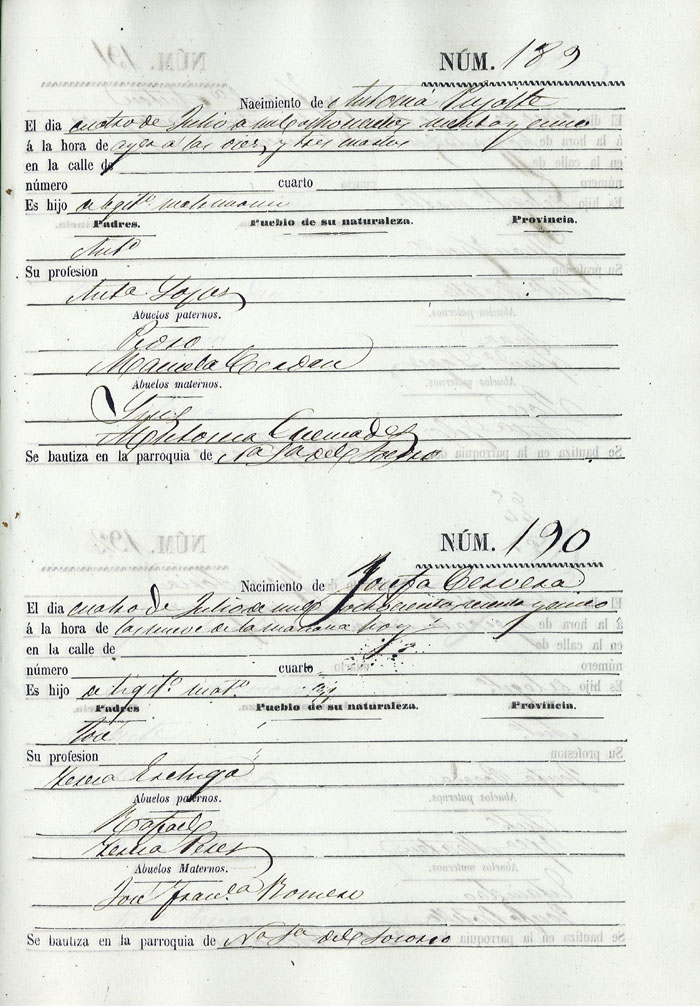 NÚM. 189
Nacimiento de Antonia
El dia cuatro de Julio de mil ochocientos sesenta y cinco
á la hora de ayer a las diez y tres cuartos
en la calle de
número cuarto
Es hijo de legitº matrimonio
Padres. Pueblo de su naturaleza. Provincia.
Antº
Su profesion
Anta
Abuelos paternos.
Pedro
Manuela Cerdan
Abuelos maternos.
Antonia
Se bautiza en la parroquia de Nª Sª del Socorro
NÚM. 190
Nacimiento de Josefa Cervera
El dia cuatro de Julio de mil ochocientos sesenta y cinco
á la hora de las nueve de la mañana hoy
en la calle de
número cuarto
Es hijo de legitº matº
Padres Pueblo de su naturaleza. Provincia.
Su profesion
Abuelos paternos.
Rafael
Perez
Abuelos Maternos.
José Franca Romero
Se bautiza en la parroquia de Nª Sª del Socorro